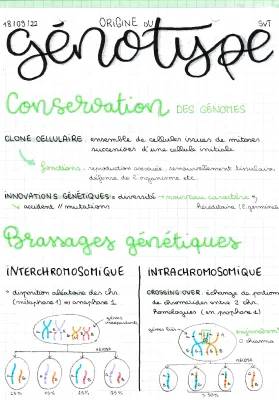 18/09/22 ORIGINE DU SVT
génotype
Conservation DES GÉNOMES
CLONE CELLULAIRE : ensemble de cellules issues de mitoses
successives d'une cellule initiale
fonctions : reproduction asexuée, renouvellement tissulaire,
défense de l'organisme etc
INNOVATIONS GÉNÉTIQUES = diversité → nouveau caractère
accident // mutations héréditaire (C. germinale)
Brassages génétiques
INTERCHROMOSOMIQUE INTRACHROMOSOMIQUE
disposition aléatoire des chr
(métaphase 1) et anaphase 1
gènes indépendants
MÉIOSE
25% 25% 25% 25%
CROSSING-OVER : échange de portions
de chromatides entre 2 chr
homologues (en prophase 1)
gènes liés
chiasma
MÉIOSE